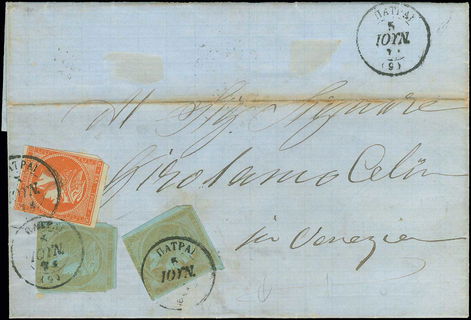 ΠΑΤΡΑΙ
5
ΙΟΥΝ.
(9)
Al Sig. Signore
Girolamo
in Venezia
ΠΑΤΡΑΙ
ΙΟΥΝ.
ΠΑΤΡΑΙ
ΙΟΥΝ.
(9)
ΠΑΤΡΑΙ
5
ΙΟΥΝ.